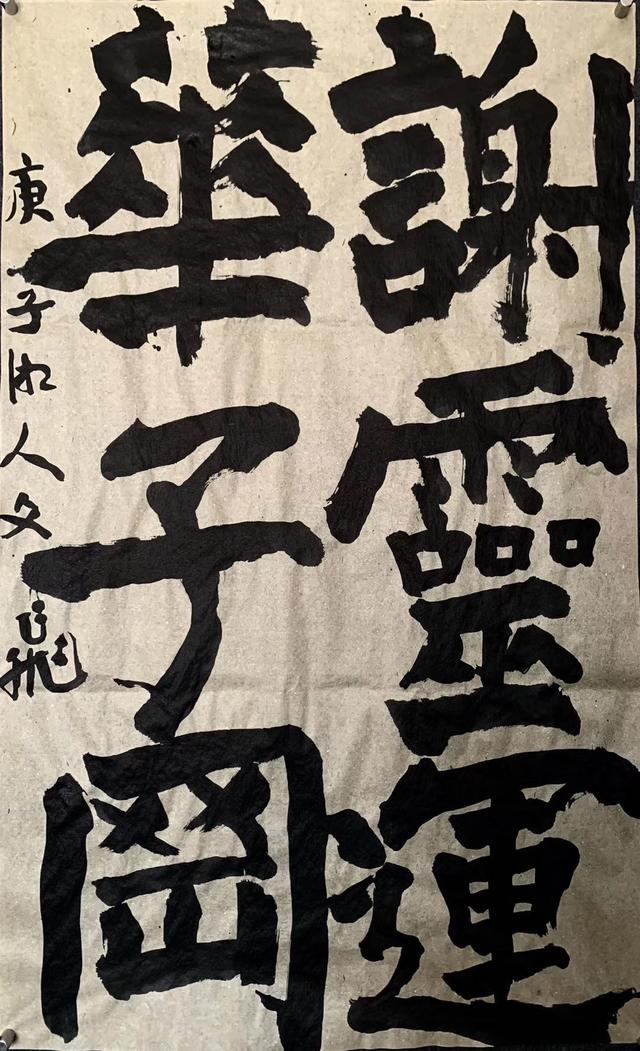 謝靈運
華子岡
庚子湘人文飛